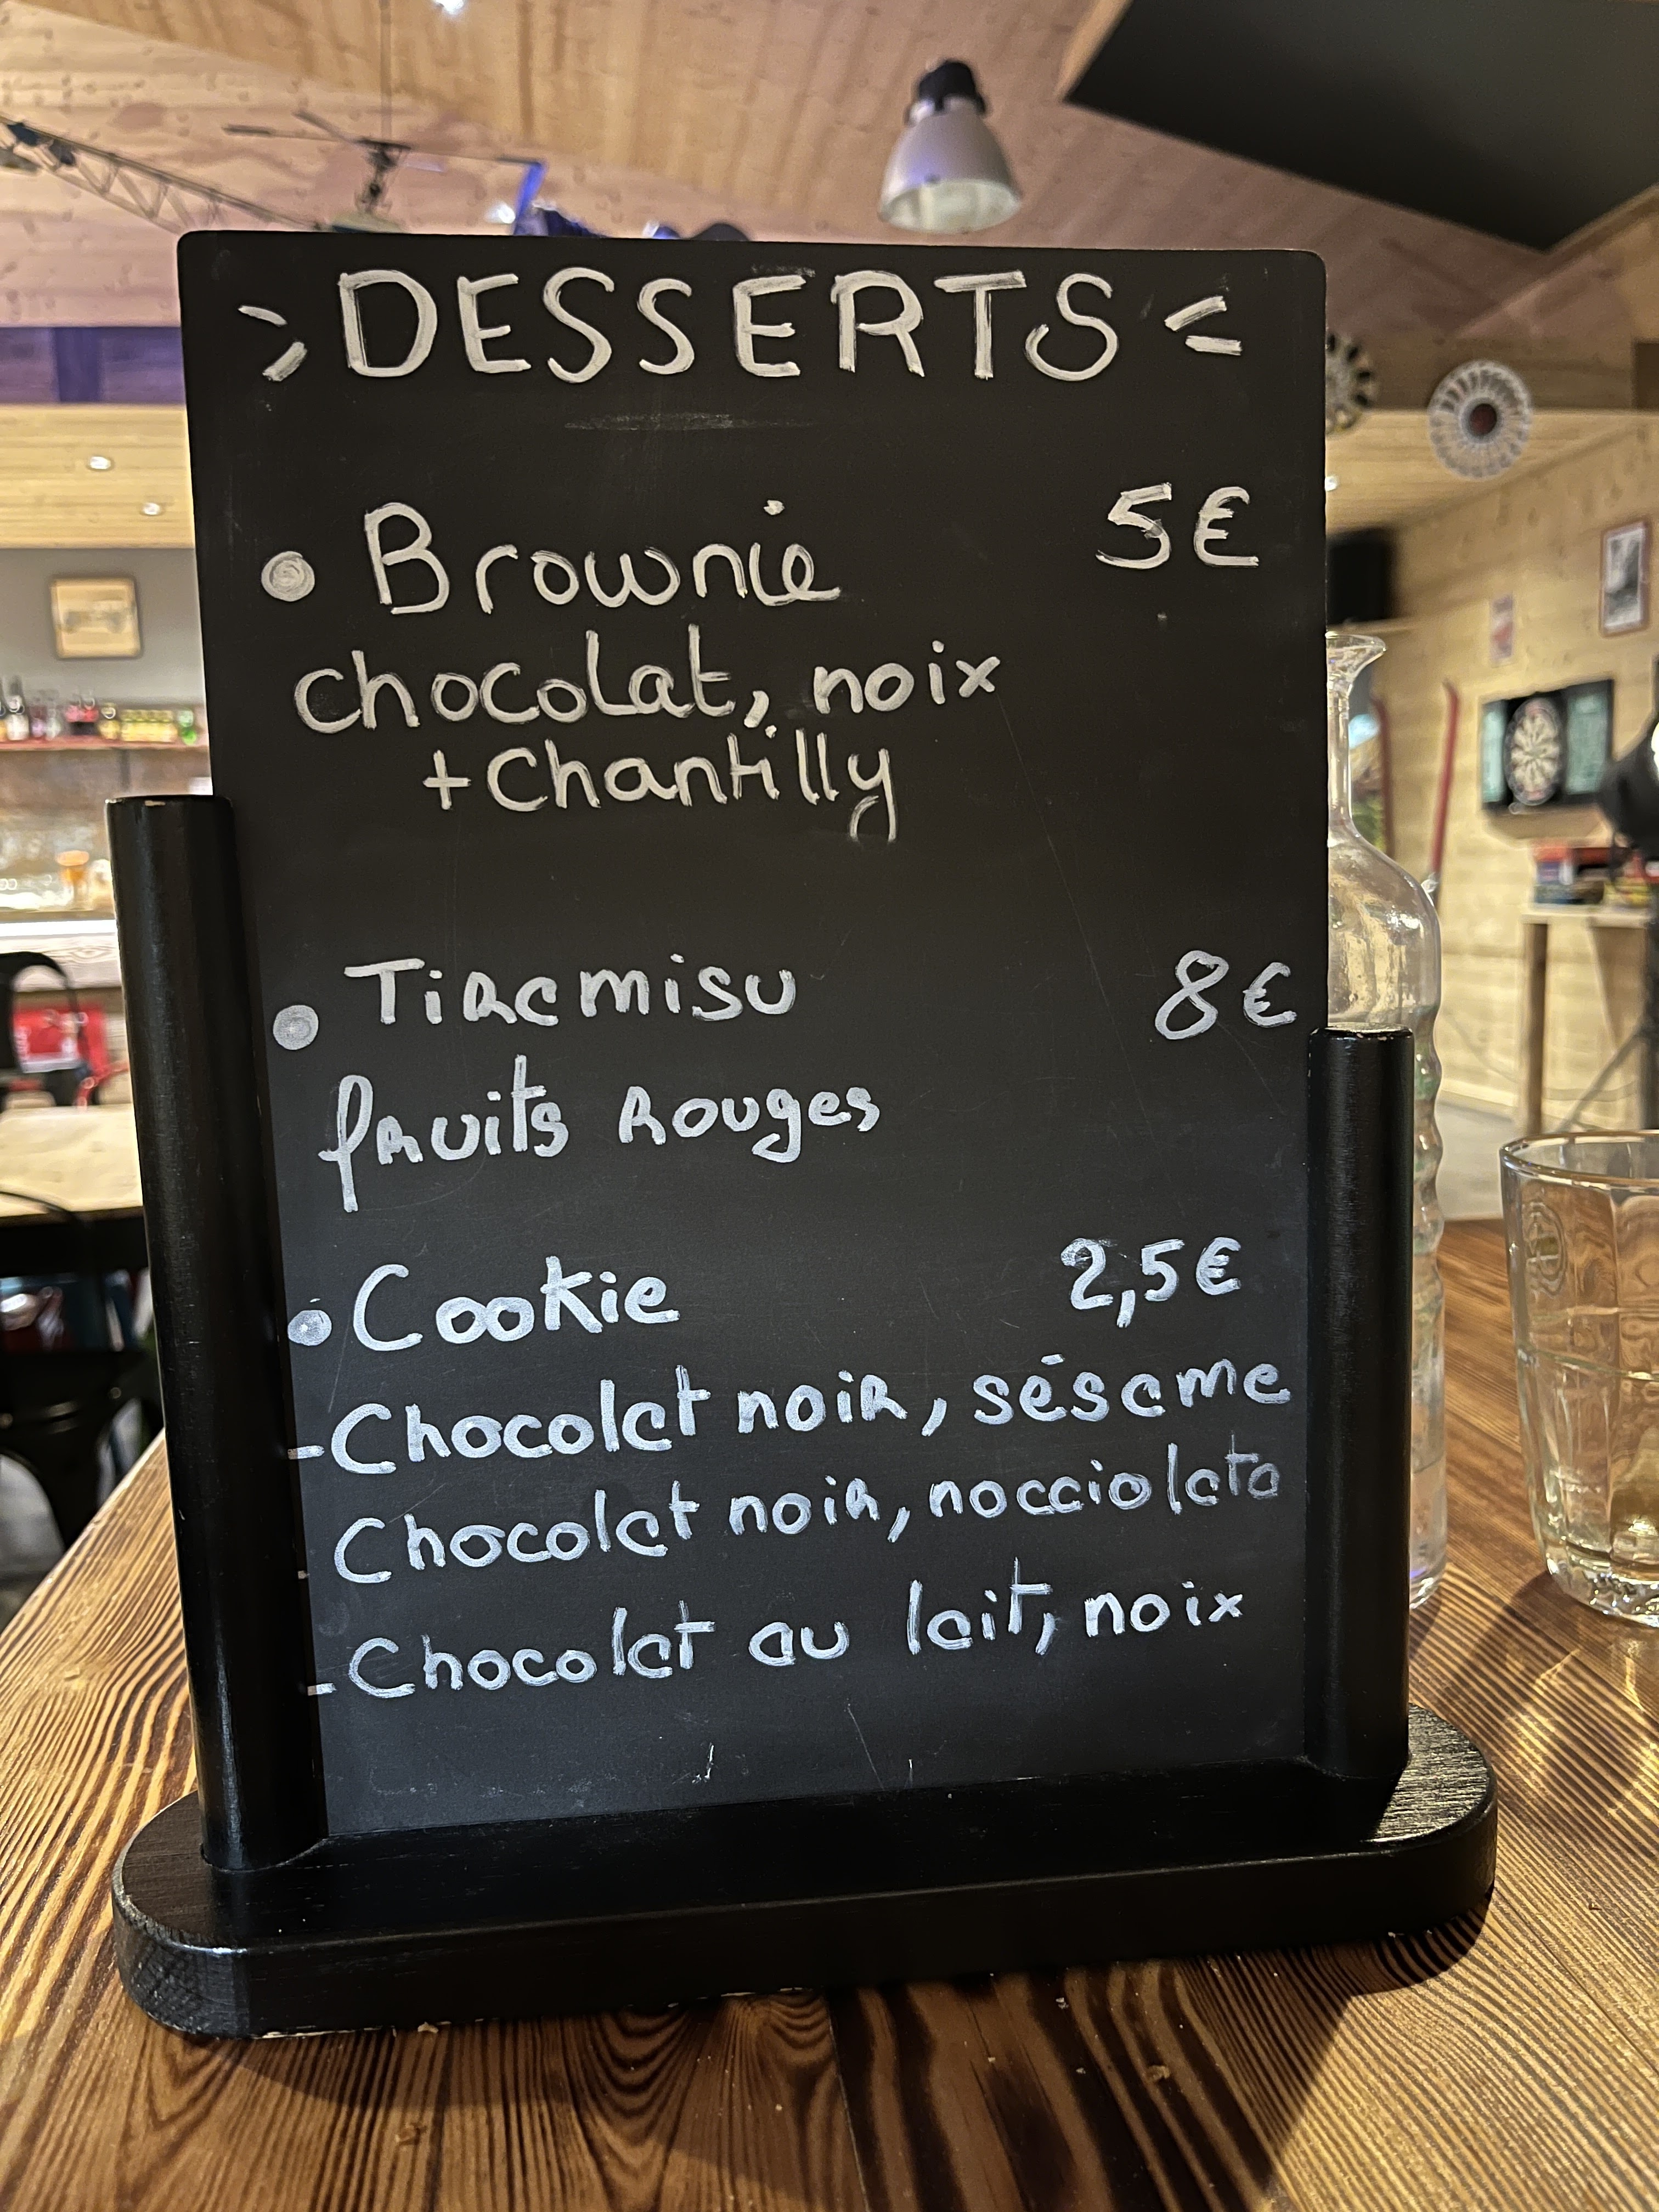 DESSERTS
• Brownie 5€
chocolat, noix
+ Chantilly
• Tiramisu 8€
fruits rouges
• Cookie 2,5€
- Chocolat noir, sésame
- Chocolat noir, nocciolata
- Chocolat au lait, noix